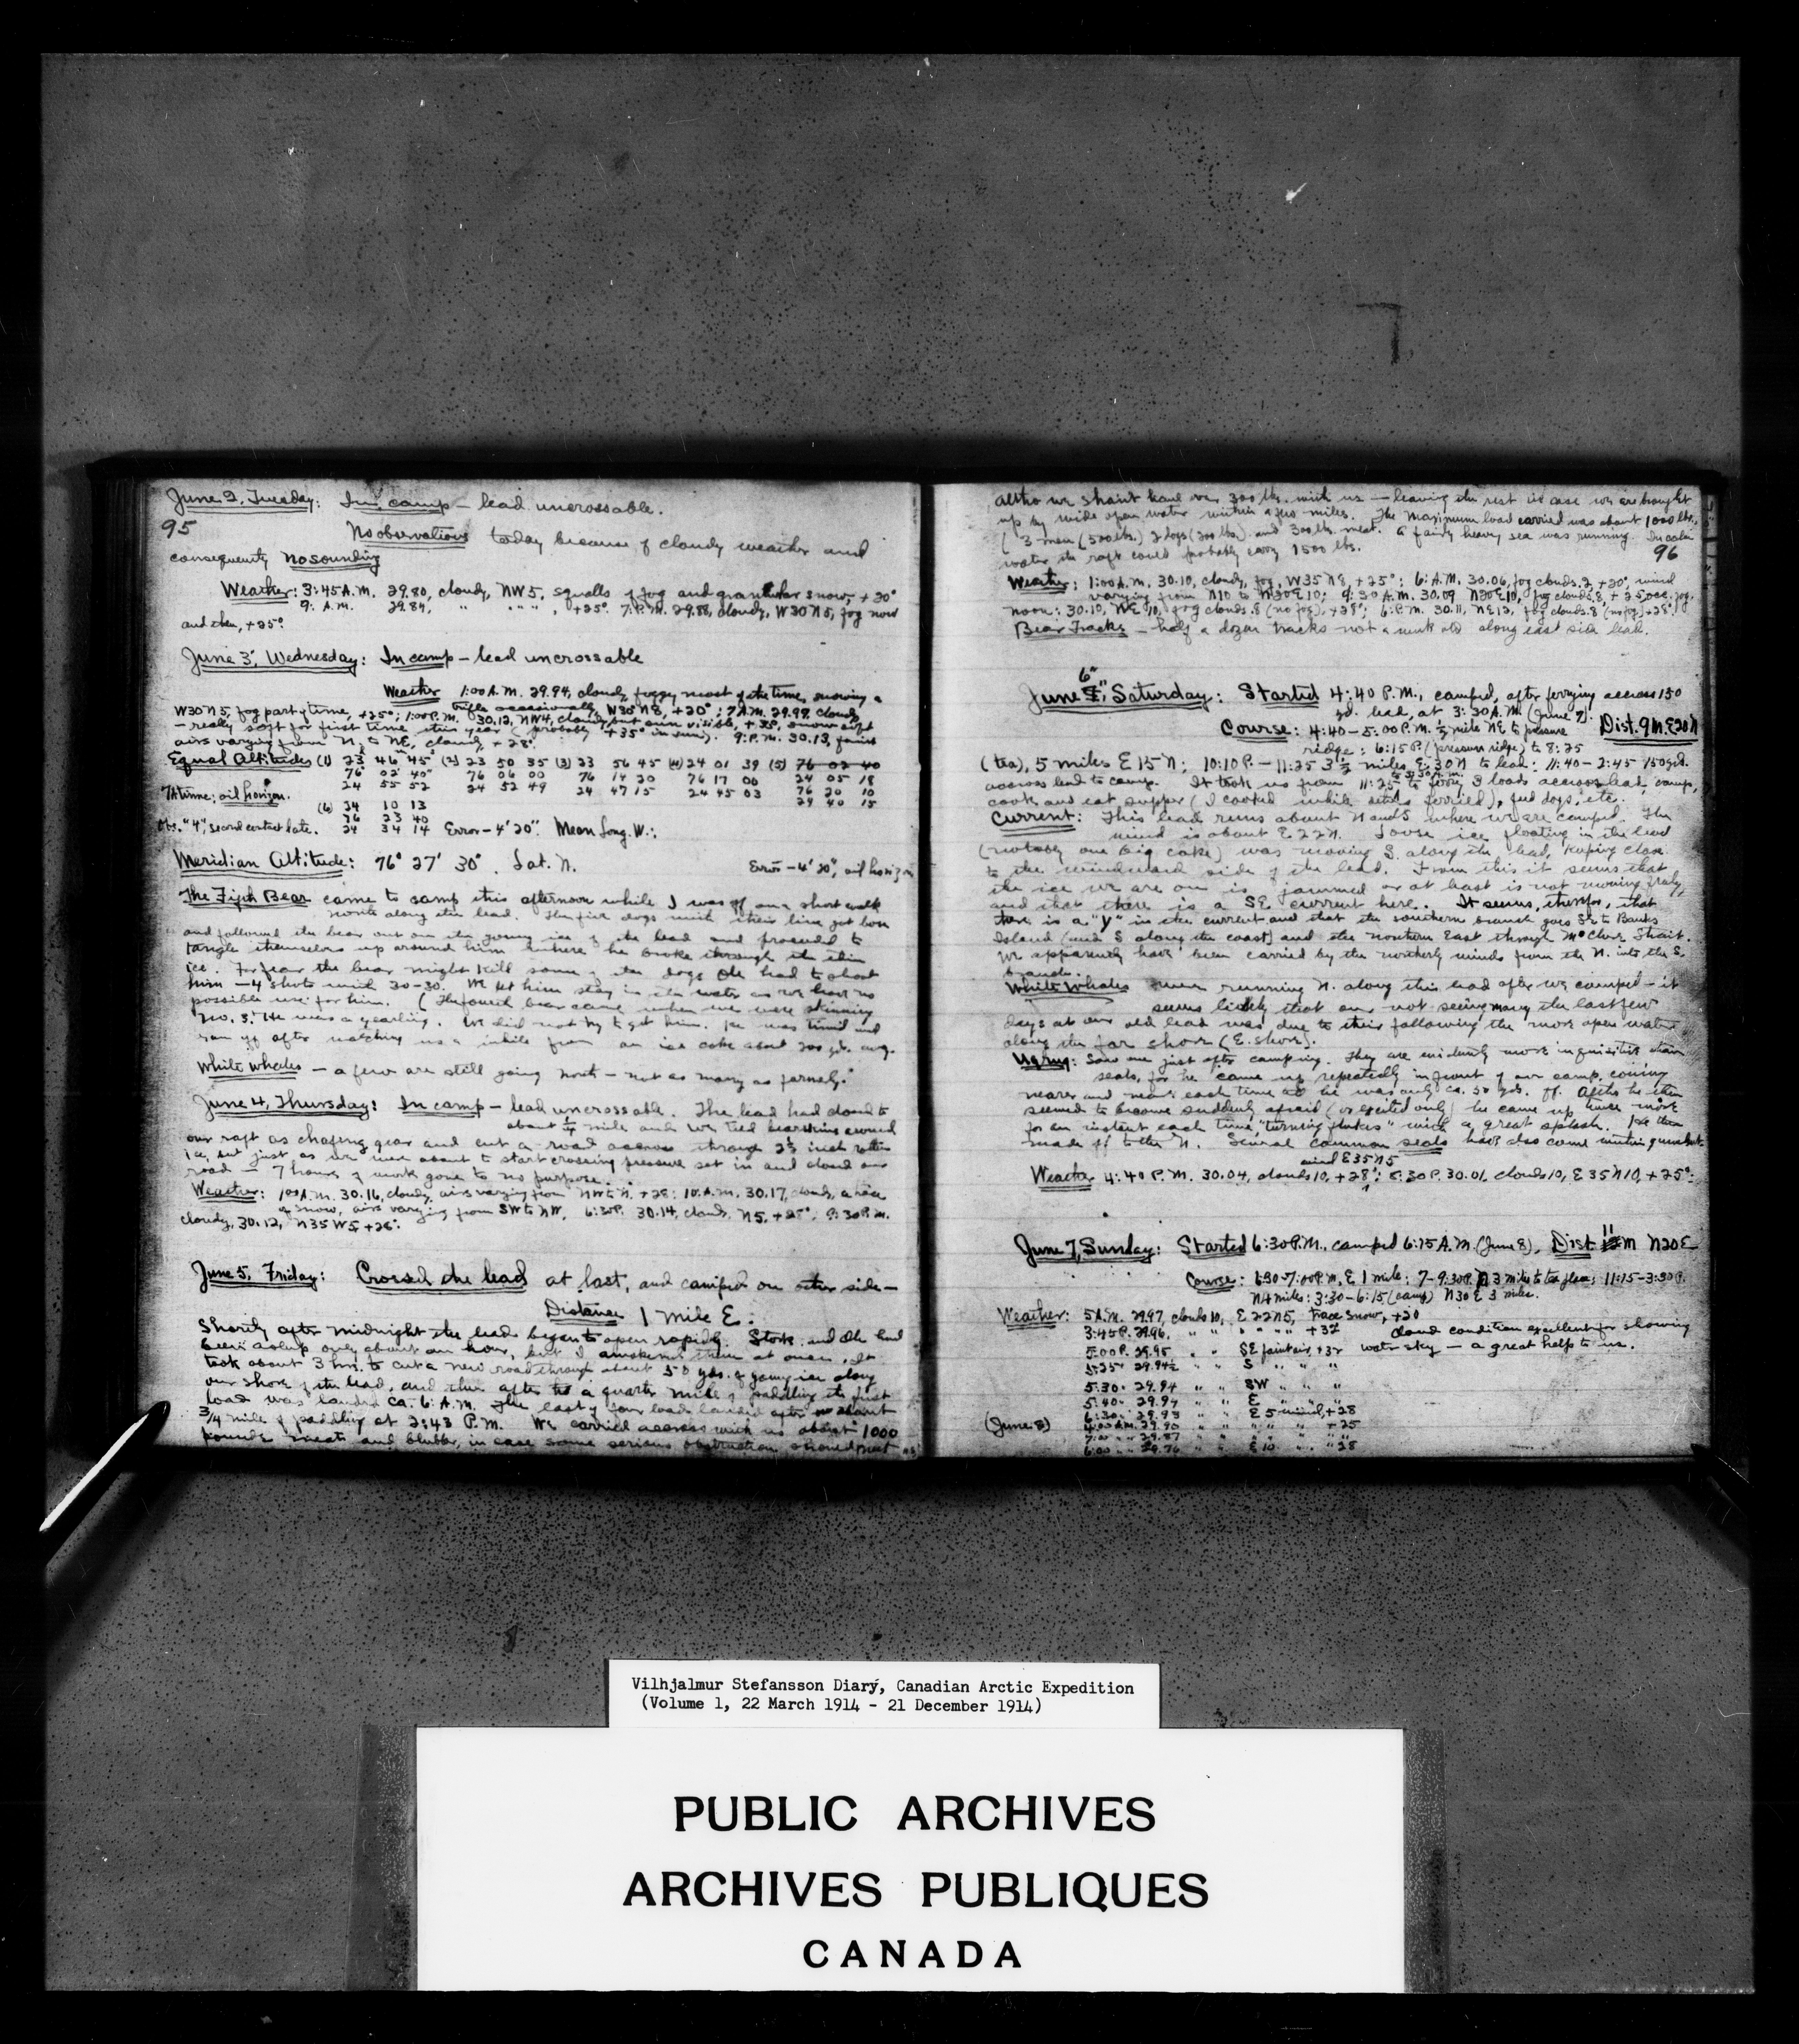 June 2, Tuesday: In camp – lead uncrossable.
95
No observations today because of cloudy weather and
consequently no sounding
Weather: 3:45 A.M. 29.80, cloudy, NW 5, squalls of fog and granular snow, +20°
9: A.M. 29.84, " " " " , +25°. 7: P.M. 29.88, cloudy, W30N5, fog now
and then, +25°.
June 3, Wednesday: In camp – lead uncrossable
Weather 1:00 A.M. 29.94, cloudy, foggy most of the time, snowing a
trifle occasionally, W30N8, +20°; 7 A.M. 29.99 cloudy
W30N5, fog part of time, +25°; 1:00 P.M. 30.12, NW4, cloudy but sun visible, + 28°, snow soft
– really soft for first time this year (probably +35° in sun). 9: P.M. 30.13, faint
airs varying from N. to NE, cloudy + 28°
Equal Altitudes (1) 23 46 45 (2) 23 50 35 (3) 23 56 45 (4) 24 01 39 (5) 76 02 40
76° 02' 40" 76 06 00 76 14 20 76 17 00 24 05 18
24 55 52 24 52 49 24 47 15 24 45 03 76 20 10
oil horizon. 24 40 15
(6) 24 10 13
76 23 40
Obs. "4", second contact late. 24 34 14 Error – 4' 20". Mean Long. W.:
Meridian Altitude: 76° 27' 30". Lat. N. Error – 4' 20", oil horizon
The Fifth Bear came to camp this afternoon while I was off on a short walk
north along the lead. The five dogs with their line got loose
and followed the bear out on the young ice of the lead and proceeded to
tangle themselves up around him where he broke through the thin
ice. For fear the bear might kill some of the dogs Ole had to shoot
him – 4 shots with 30-30. We let him stay in the water as we have no
possible use for him. (The fourth bear came when we were skinning
No. 3. He was a yearling. We did not try to get him. He was timid and
ran off after watching us a while from an ice cake about 200 yds. away.
White Whales – a few are still going north – not as many as formerly.
June 4, Thursday: In camp – lead uncrossable. The lead had closed to
about ¼ mile and we tied bearskins around
our raft as chafing gear and cut a road across through 2½ inch rotten
ice, but just as we were about to start crossing pressure set in and closed our
road – 7 hours of work gone to no purpose.
Weather: 1:00 A.M. 30.16, cloudy, airs varying from NW to N. +28; 10: A.M. 30.17, cloudy, a trace
of snow, airs varying from SW to NW, 6:30 P. 30.14, cloudy, N5, +28°; 9:30 P.M.
cloudy, 30.12, N35W5 +26°.
June 5, Friday: Crossed the lead at last, and camped on other side –
Distance 1 mile E:
Shortly after midnight the lead began to open rapidly. Stork. and Ole had
been asleep only about an hour, but I awakened them at once. It
took about 3 hrs. to cut a new road through about 50 yds. of young ice along
our shore of the lead, and then after a quarter mile of paddling the first
load was landed ca. 6: A.M. The last of four loads landed after about
3/4 mile of paddling at 2:43 P.M. We carried across with us about 1000
pounds meat and blubber, in case some serious obstruction should meet us
altho we shant haul over 300 lbs. with us – leaving the rest in case we are brought
up by wide open water within a few miles. The maximum load carried was about 1000 lbs.,
(3 men (500 lbs.) 2 dogs (200 lbs.) and 300 lbs. meat. A fairly heavy sea was running. In calm
water the raft could probably carry 1500 lbs.
96
Weather: 1:00 A.M. 30.10, cloudy, fog, W35N8, +25°; 6: A.M. 30.06, fog clouds. 2 +20°, wind
varying from N10 to N30E10; 9:30 A.M. 30.09 N20E10, fog clouds. 8, + 25, occ. fog.
noon: 30.10, NE 10, fog clouds. 8 (no fog), +28°; 6: P.M. 30.11, NE12, fog clouds. 8 (no fog) +28°.
Bear Tracks – half a dozen tracks not a week old along east side lead.
June 6", Saturday: Started 4:40 P.M., camped, after ferrying across 150
yd. lead, at 3:30 A.M. (June 7). Dist. 9 m. E20N
Course: 4:40 – 5:00 P.M. ½ mile NE to pressure
ridge: 6:15 P. (pressure ridge) to 8:25
(tea), 5 miles E 15 N; 10:10 P. – 11:25 3½ miles, E 30 N to lead: 11:40 – 2:45 150 yd.
across lead to camp. It took us from 11:25 to 3:30 A.M. to ferry 3 loads across lead, camp,
cook and eat supper (I cooked while others ferried), feed dogs, etc.
Current: This lead runs about N and S where we are camped. The
wind is about E22N. Loose ice floating in the lead
(notably one big cake) was moving S. along the lead, keeping close
to the windward side of the lead. From this it seems that
the ice we are on is jammed or at least is not moving freely,
and that there is a SE current here. It seems, therefor, that
there is a "Y" in the current and that the southern branch goes SE to Banks
Island (and S along the coast) and the northern East through McClure Strait.
We apparently have been carried by the northerly winds from the N. into the S.
branch.
White Whales were running N. along this lead after we camped – it
seems likely that our not seeing many the last few
days at our old lead was due to their following the more open water
along the far shore (E. shore).
Ugrug: Saw one just after camping. They are evidently more inquisitive than
seals, for he came up repeatedly in front of our camp, coming
nearer and nearer each time till he was only ca. 50 yds. off. Altho he then
seemed to become suddenly afraid (or excited only) he came up twice more
for an instant each time "turning flukes" with a great splash. He then
made off to the N. Several common seals have also come within gunshot.
Weather 4:40 P.M. 30.04, clouds 10, +28°, wind E35N5; 8:30 P. 30.01, clouds 10, E 35 N 10, +25°:
June 7, Sunday: Started 6:30 P.M., camped 6:15 A.M. (June 8), Dist 11 m N20E
Course: 6:30-7:00 P.M. E 1 mile; 7-9:30 P. N 3 miles to tea place; 11:15-3:30 P.
N 4 miles: 3:30 – 6:15 (camp) N30E 3 miles.
Weather: 5 A.M. 29.97, clouds 10, E 22 N 5, trace snow, +20
3:45 P. 29.96, " " " " " " +32 cloud condition excellent for showing
5:00 P. 29.95 " " SE faint air, +32 water sky – a great help to us.
5:25 " 29.94½ " " S " " "
5:30 " 29.94 " " SW " " "
5:40 " 29.94 " " E " " "
6:30 " 29.93 " " E 5 wind, +28
(June 8) 4:00 A.M. 29.90 " " " " " +25
7:00 " " 29.87 " " " " " "
6:00 " " 29.76 " " E 10 " " 28
Vilhjalmur Stefansson Diary, Canadian Arctic Expedition
(Volume 1, 22 March 1914 - 21 December 1914)
PUBLIC ARCHIVES
ARCHIVES PUBLIQUES
CANADA